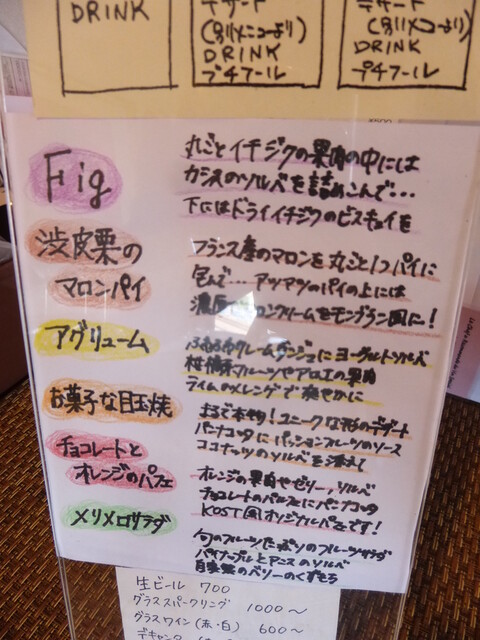 DRINK
デザート
(別メニューより)
DRINK
プチフール
デザート
(別メニューより)
DRINK
プチフール
Fig
丸ごとイチジクの果肉の中には
カシスのソルベを詰めこんで…
下にはドライイチジクのビスキュイを
渋皮栗の
マロンパイ
フランス産のマロンを丸ごと1つパイに
包んで…アツアツのパイの上には
濃厚マロンクリームをモンブラン風に!
アグリューム
ふわふわクレームダンジュにヨーグルトソルベ
柑橘フルーツやアロエの果肉
ライムのメレンゲで爽やかに
お菓子な目玉焼
まるで本物!ユニークな形のデザート
パンナコッタにパッションフルーツのソース
ココナッツのソルベを添えて
チョコレートと
オレンジのパフェ
オレンジの果肉やゼリー,ソルベ
チョコレートのパルフェにパンナコッタ
KOST風オリジナルパフェです!
メリメロサラダ
旬のフルーツたっぷりのフルーツサラダ
パイナップルとアニスのソルベ
自家製のベリーのくずもち
生ビール 700
グラススパークリング 1000〜
グラスワイン(赤・白) 600〜
デキャンタ